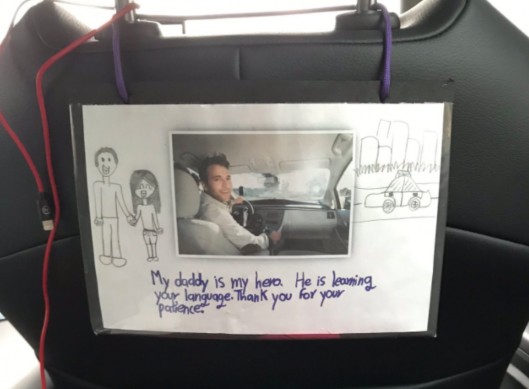 My daddy is my hero. He is learning
your language. Thank you for your
patience.